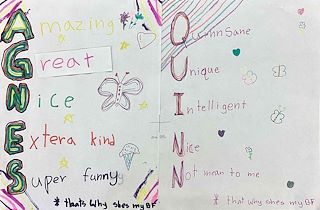 Amazing
Great
Nice
Extera kind
Super funny
* thats why shes my BF
QuinnSane
Unique
Intelligent
Nice
Not mean to me
* that why shes my BF